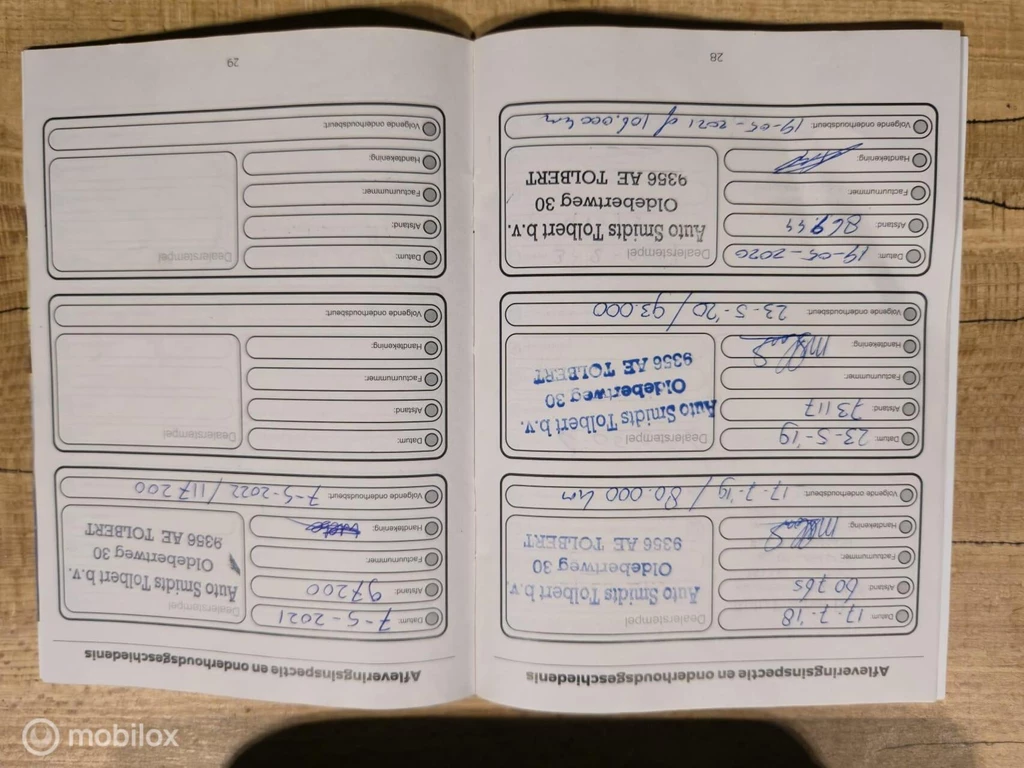 Afleveringsinspectie en onderhoudsgeschiedenis
Datum: 17-7-'18
Afstand: 60765
Factuurnummer:
Handtekening:
Dealerstempel
Auto Smidts Tolbert b.v.
Oldebertweg 30
9356 AE TOLBERT
Volgende onderhoudsbeurt: 17-7-'19 / 80.000 km
Datum: 23-5-'19
Afstand: 73117
Factuurnummer:
Handtekening:
Dealerstempel
Auto Smidts Tolbert b.v.
Oldebertweg 30
9356 AE TOLBERT
Volgende onderhoudsbeurt: 23-5-'20 / 93.000
Datum: 19-05-2020
Afstand: 86944
Factuurnummer:
Handtekening:
Dealerstempel
Auto Smidts Tolbert b.v.
Oldebertweg 30
9356 AE TOLBERT
Volgende onderhoudsbeurt: 19-05-2021 of 106.000 km
28
Afleveringsinspectie en onderhoudsgeschiedenis
Datum: 7-5-2021
Afstand: 97200
Factuurnummer:
Handtekening:
Dealerstempel
Auto Smidts Tolbert b.v.
Oldebertweg 30
9356 AE TOLBERT
Volgende onderhoudsbeurt: 7-5-2022 / 117200
Datum:
Afstand:
Factuurnummer:
Handtekening:
Dealerstempel
Volgende onderhoudsbeurt:
Datum:
Afstand:
Factuurnummer:
Handtekening:
Dealerstempel
Volgende onderhoudsbeurt:
29
mobilox